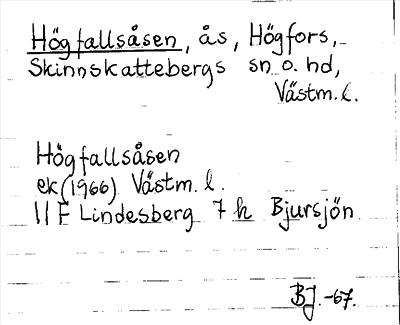 Högfallsåsen, ås, Högfors,
Skinnskattebergs sn o. hd,
Västm. l.
Högfallsåsen
ek (1966) Västm. l.
11 F Lindesberg 7 h Bjursjön
BJ. -67.